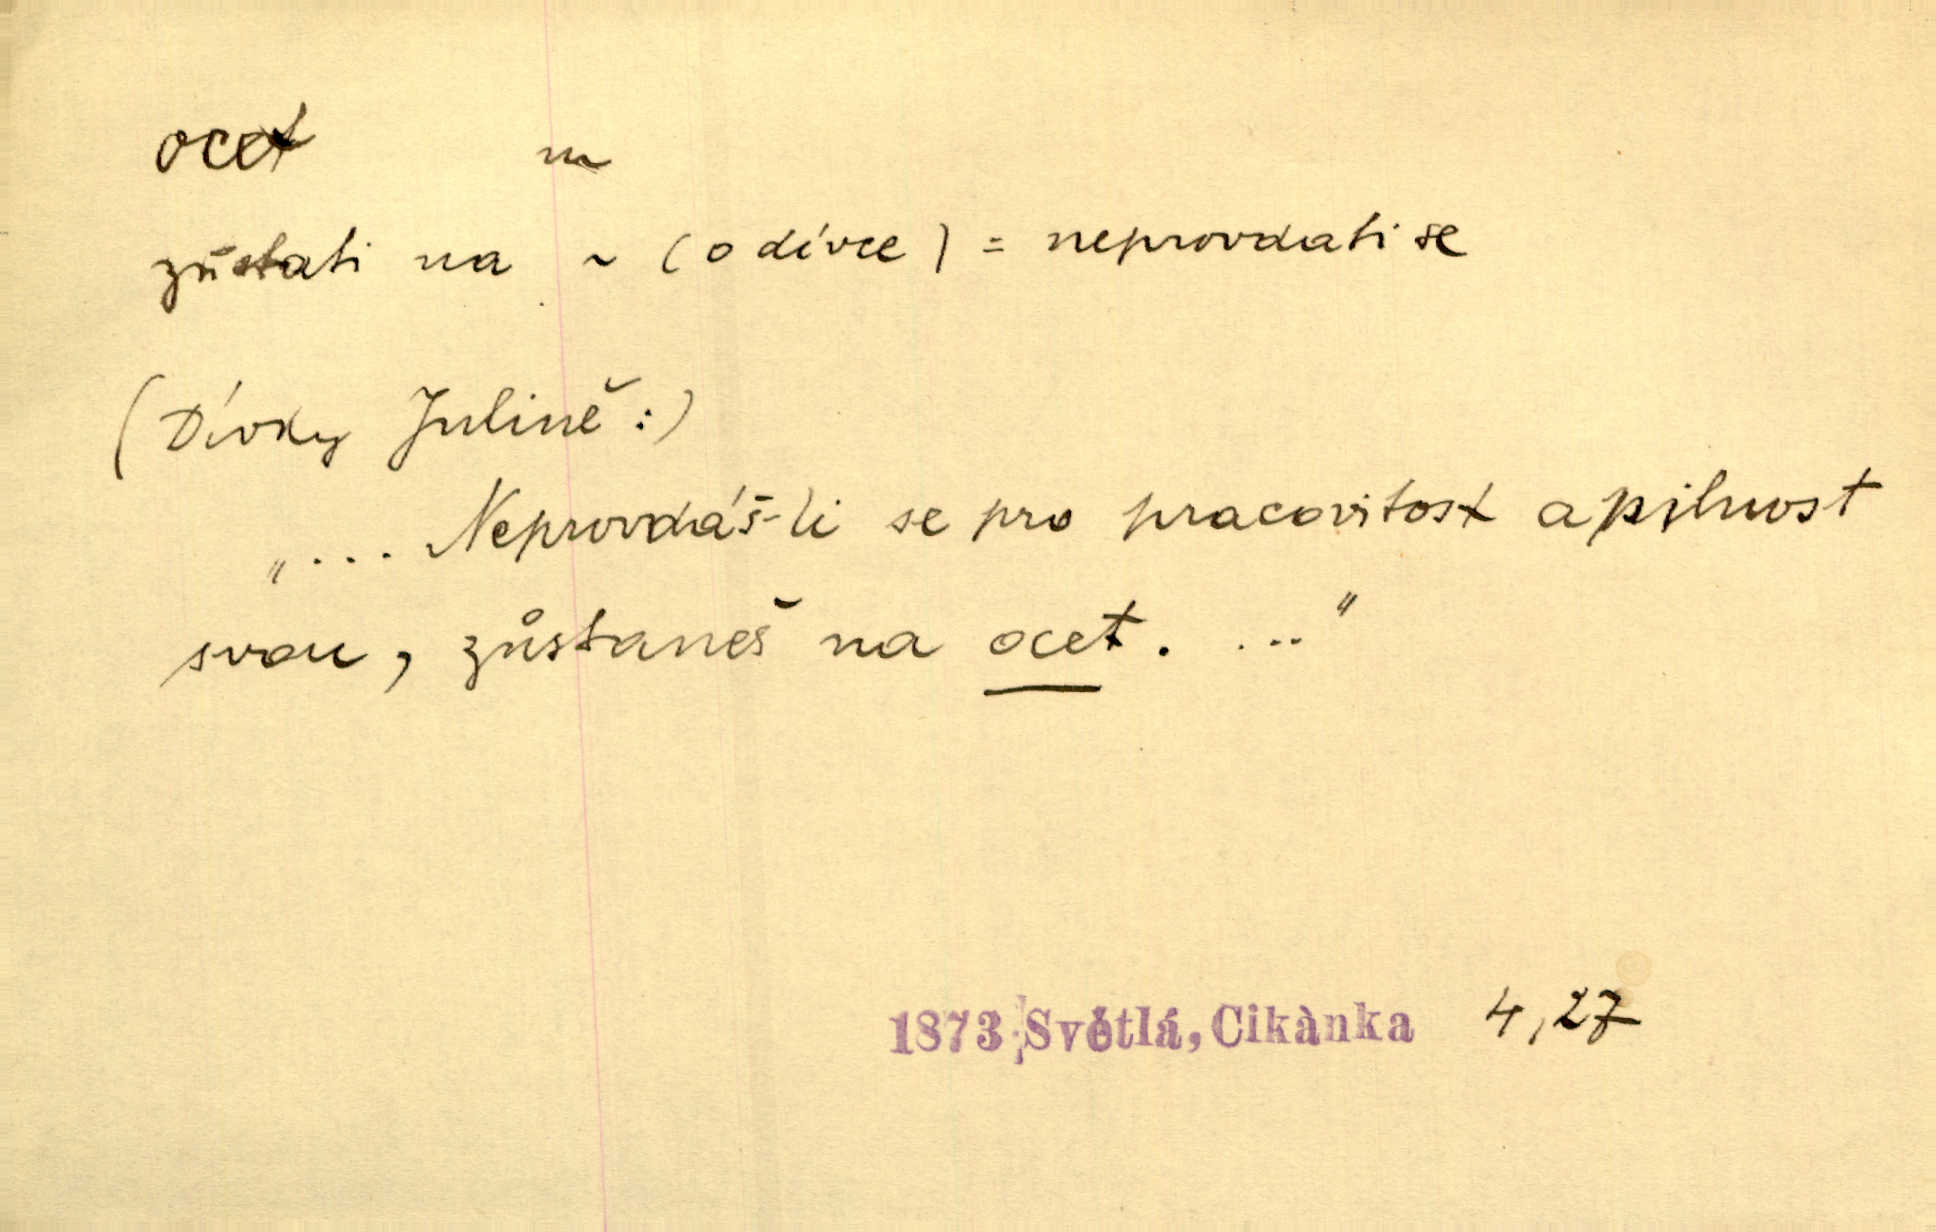 ocet m
zůstati na ~ (o dívce) = neprovdati se
(Dívky Julině:)
„... Neprovdáš-li se pro pracovitost a pilnost
svou, zůstaneš na ocet. ..."
1873 Světlá, Cikànka 4,27